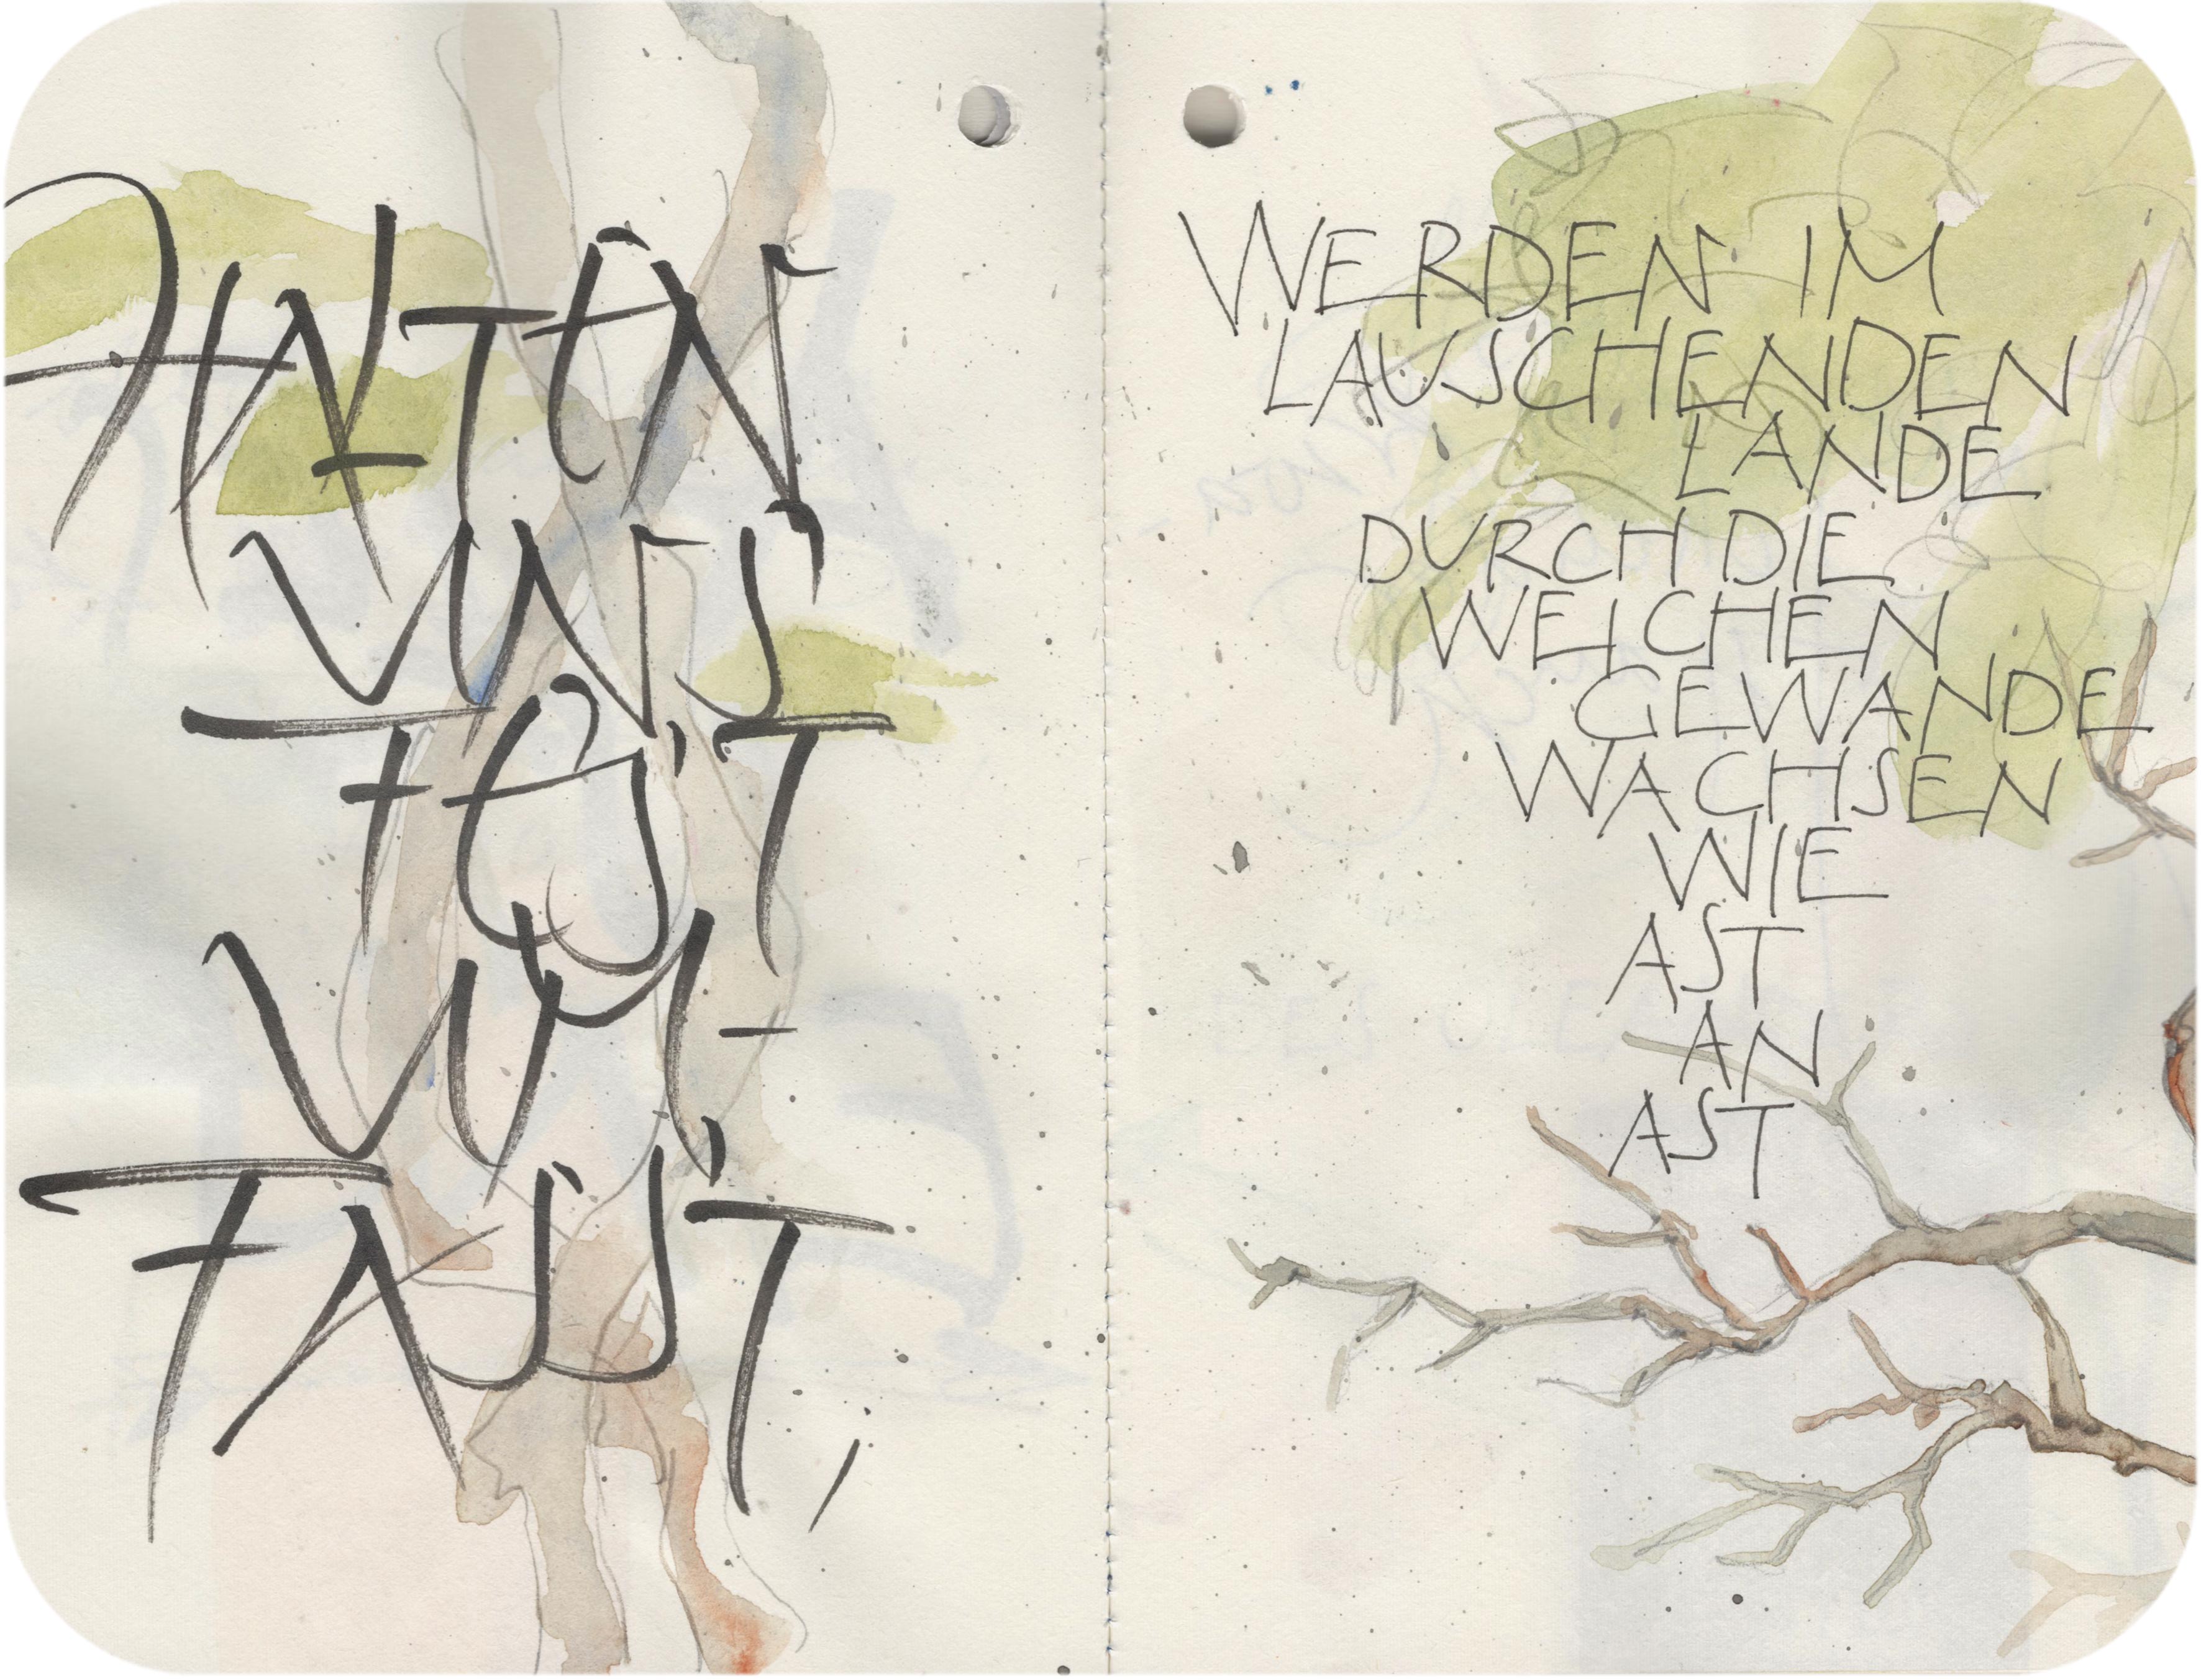 HALTEN
UNS
FEST
UM-
FASST,
WERDEN IM
LAUSCHENDEN
LANDE
DURCH DIE
WEICHEN
GEWANDE
WACHSEN
WIE
AST
AN
AST